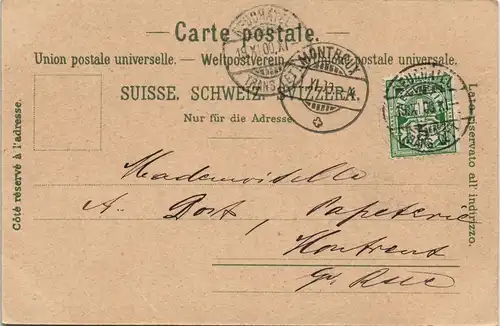 Carte postale.
Union postale universelle. — Weltpostverein. — Unione postale universale.
SUISSE. SCHWEIZ. SVIZZERA.
Nur für die Adresse.
Côté réservé à l'adresse.
Lato riservato all' indirizzo.
MONTREUX
XI.13
Mademoiselle
A. Dost, Papeterie
Montreux
Gr. Rue